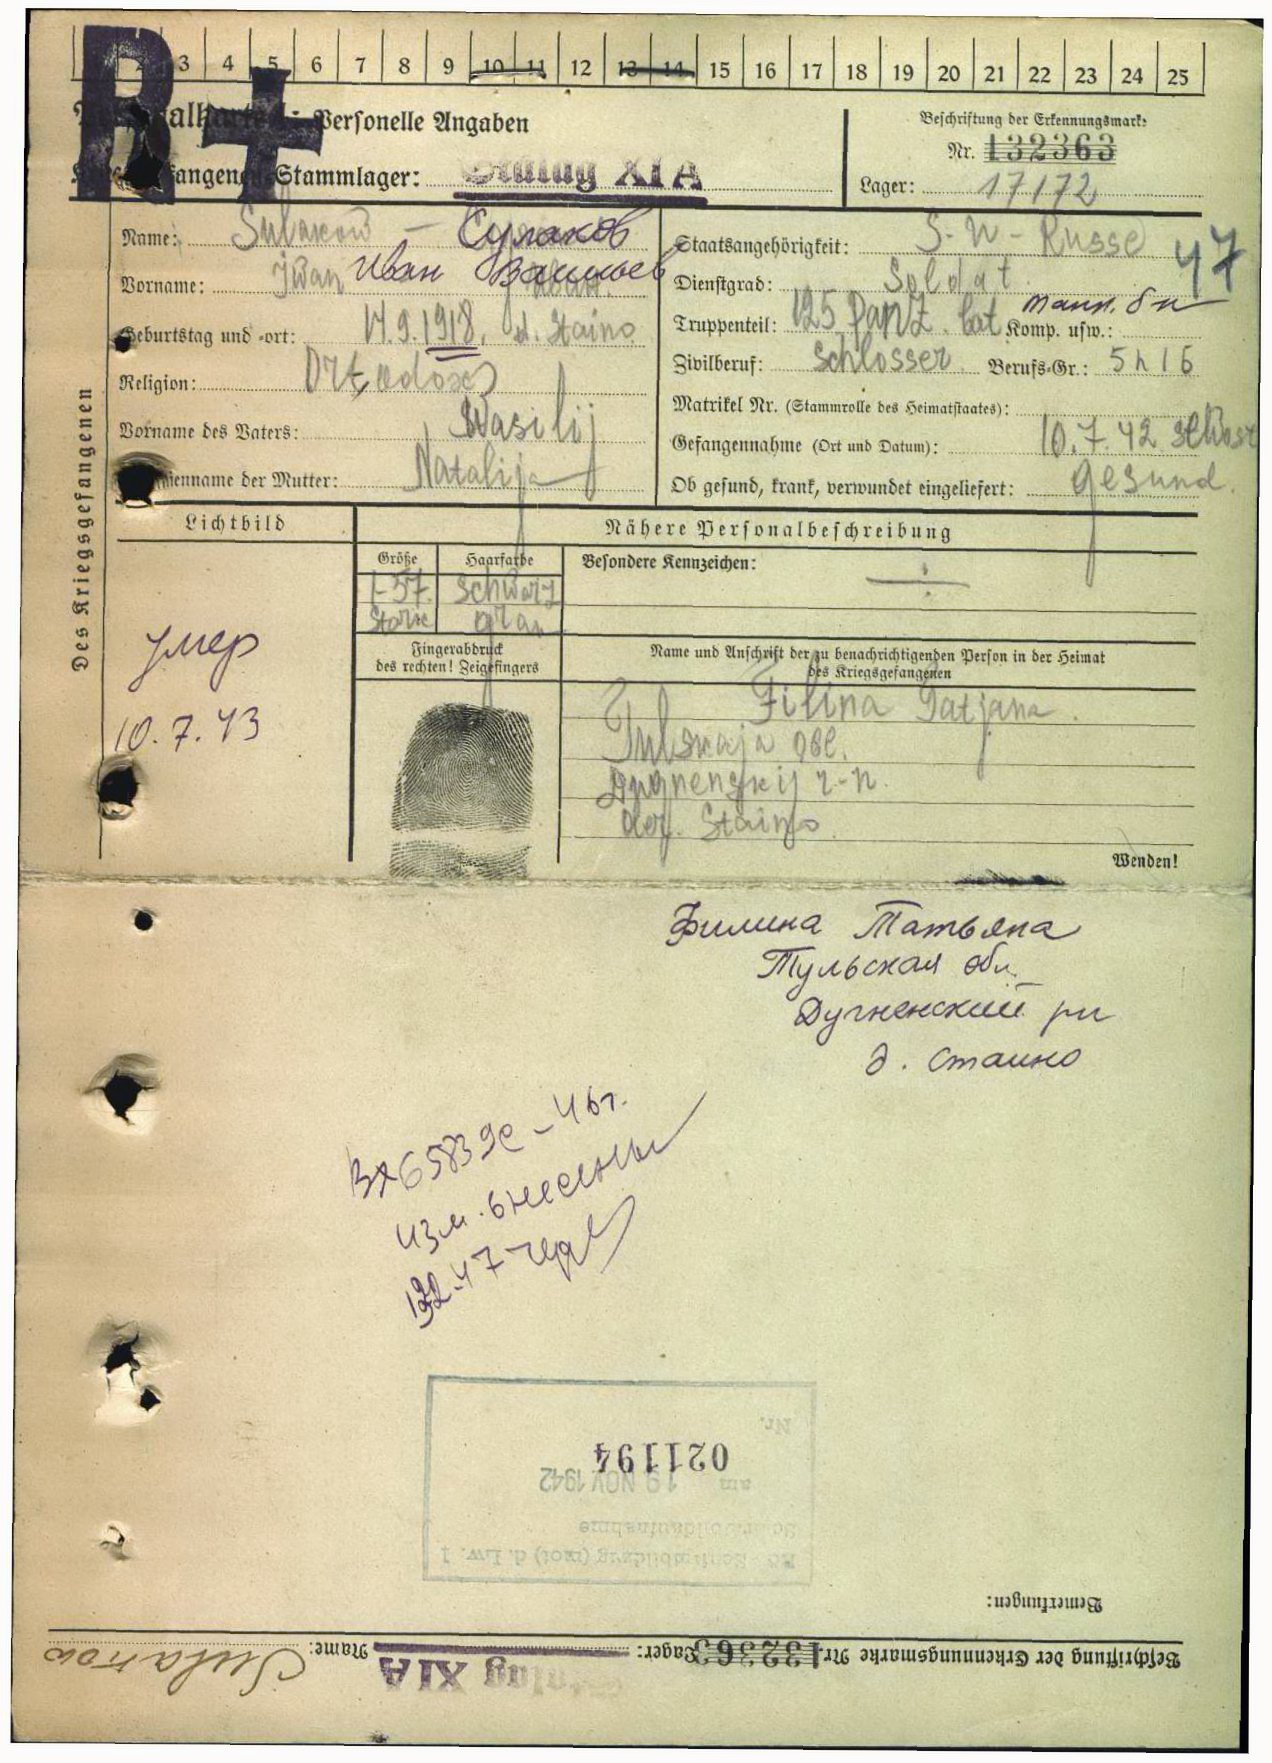 3 4 5 6 7 8 9 10 11 12 13 14 15 16 17 18 19 20 21 22 23 24 25
R +
Personelle Angaben
Beschriftung der Erkennungsmarke
Nr. 132363
Stammlager: Stalag XI A
Lager: 17172
Des Kriegsgefangenen
Name: Sulakow – Сулаков
Vorname: Iwan Иван Васильев
Geburtstag und -ort: 17.9.1918. d. Staino
Religion: Ortodox
Vorname des Vaters: Wasilij
Familienname der Mutter: Natalija
Staatsangehörigkeit: S-U-Russe 47
Dienstgrad: Soldat
Truppenteil: 125 Panz. bat Komp. usw.: танк. б-н
Zivilberuf: Schlosser Berufs-Gr.: 5h16
Matrikel Nr. (Stammrolle des Heimatstaates):
Gefangennahme (Ort und Datum): 10.7.42
Ob gesund, krank, verwundet eingeliefert: Gesund.
Lichtbild
умер
10.7.43
Nähere Personalbeschreibung
Größe Haarfarbe Besondere Kennzeichen:
1-57. Schwarz
grau
Fingerabdruck
des rechten! Zeigefingers
Name und Anschrift der zu benachrichtigenden Person in der Heimat
des Kriegsgefangenen
Filina Tatjana
Tulskaja obl.
Dugnenskij r-n.
der. Staino
Wenden!
Филина Татьяна
Тульская обл.
Дугненский рн
д. Стаино
46г.
изм. внесены
Nr.
021194
am 19 NOV 1942
Bemerkungen:
Beschriftung der Erkennungsmarke Nr. 132363 Lager: Stalag XI A Name: Sulakow